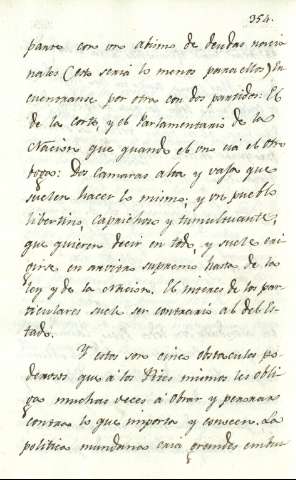 354.
parte con un abimo de deudas nacio
nales (esto será lo menos para ellos) En
cuentranse por otra con dos partidos: El
de la corte, y el Parlamentario de la
Nacion que quando el uno vá el otro
torna: Dos Camaras alta y vaja que
suelen hacer lo mismo; y un pueblo
libertino, Caprichoso y tumultuante,
que quieren decir en todo, y suele eri
girse en arvitro supremo hasta de la
ley y de la Nacion. El interes de los par
ticulares suele ser contrario al del Es
tado.
Y estos son cinco obstaculos po
derosos que á los Reies mismos les obli
gan muchas veces á obrar y pensar
contra lo que importa y conocen. La
politica mundana casi grandes